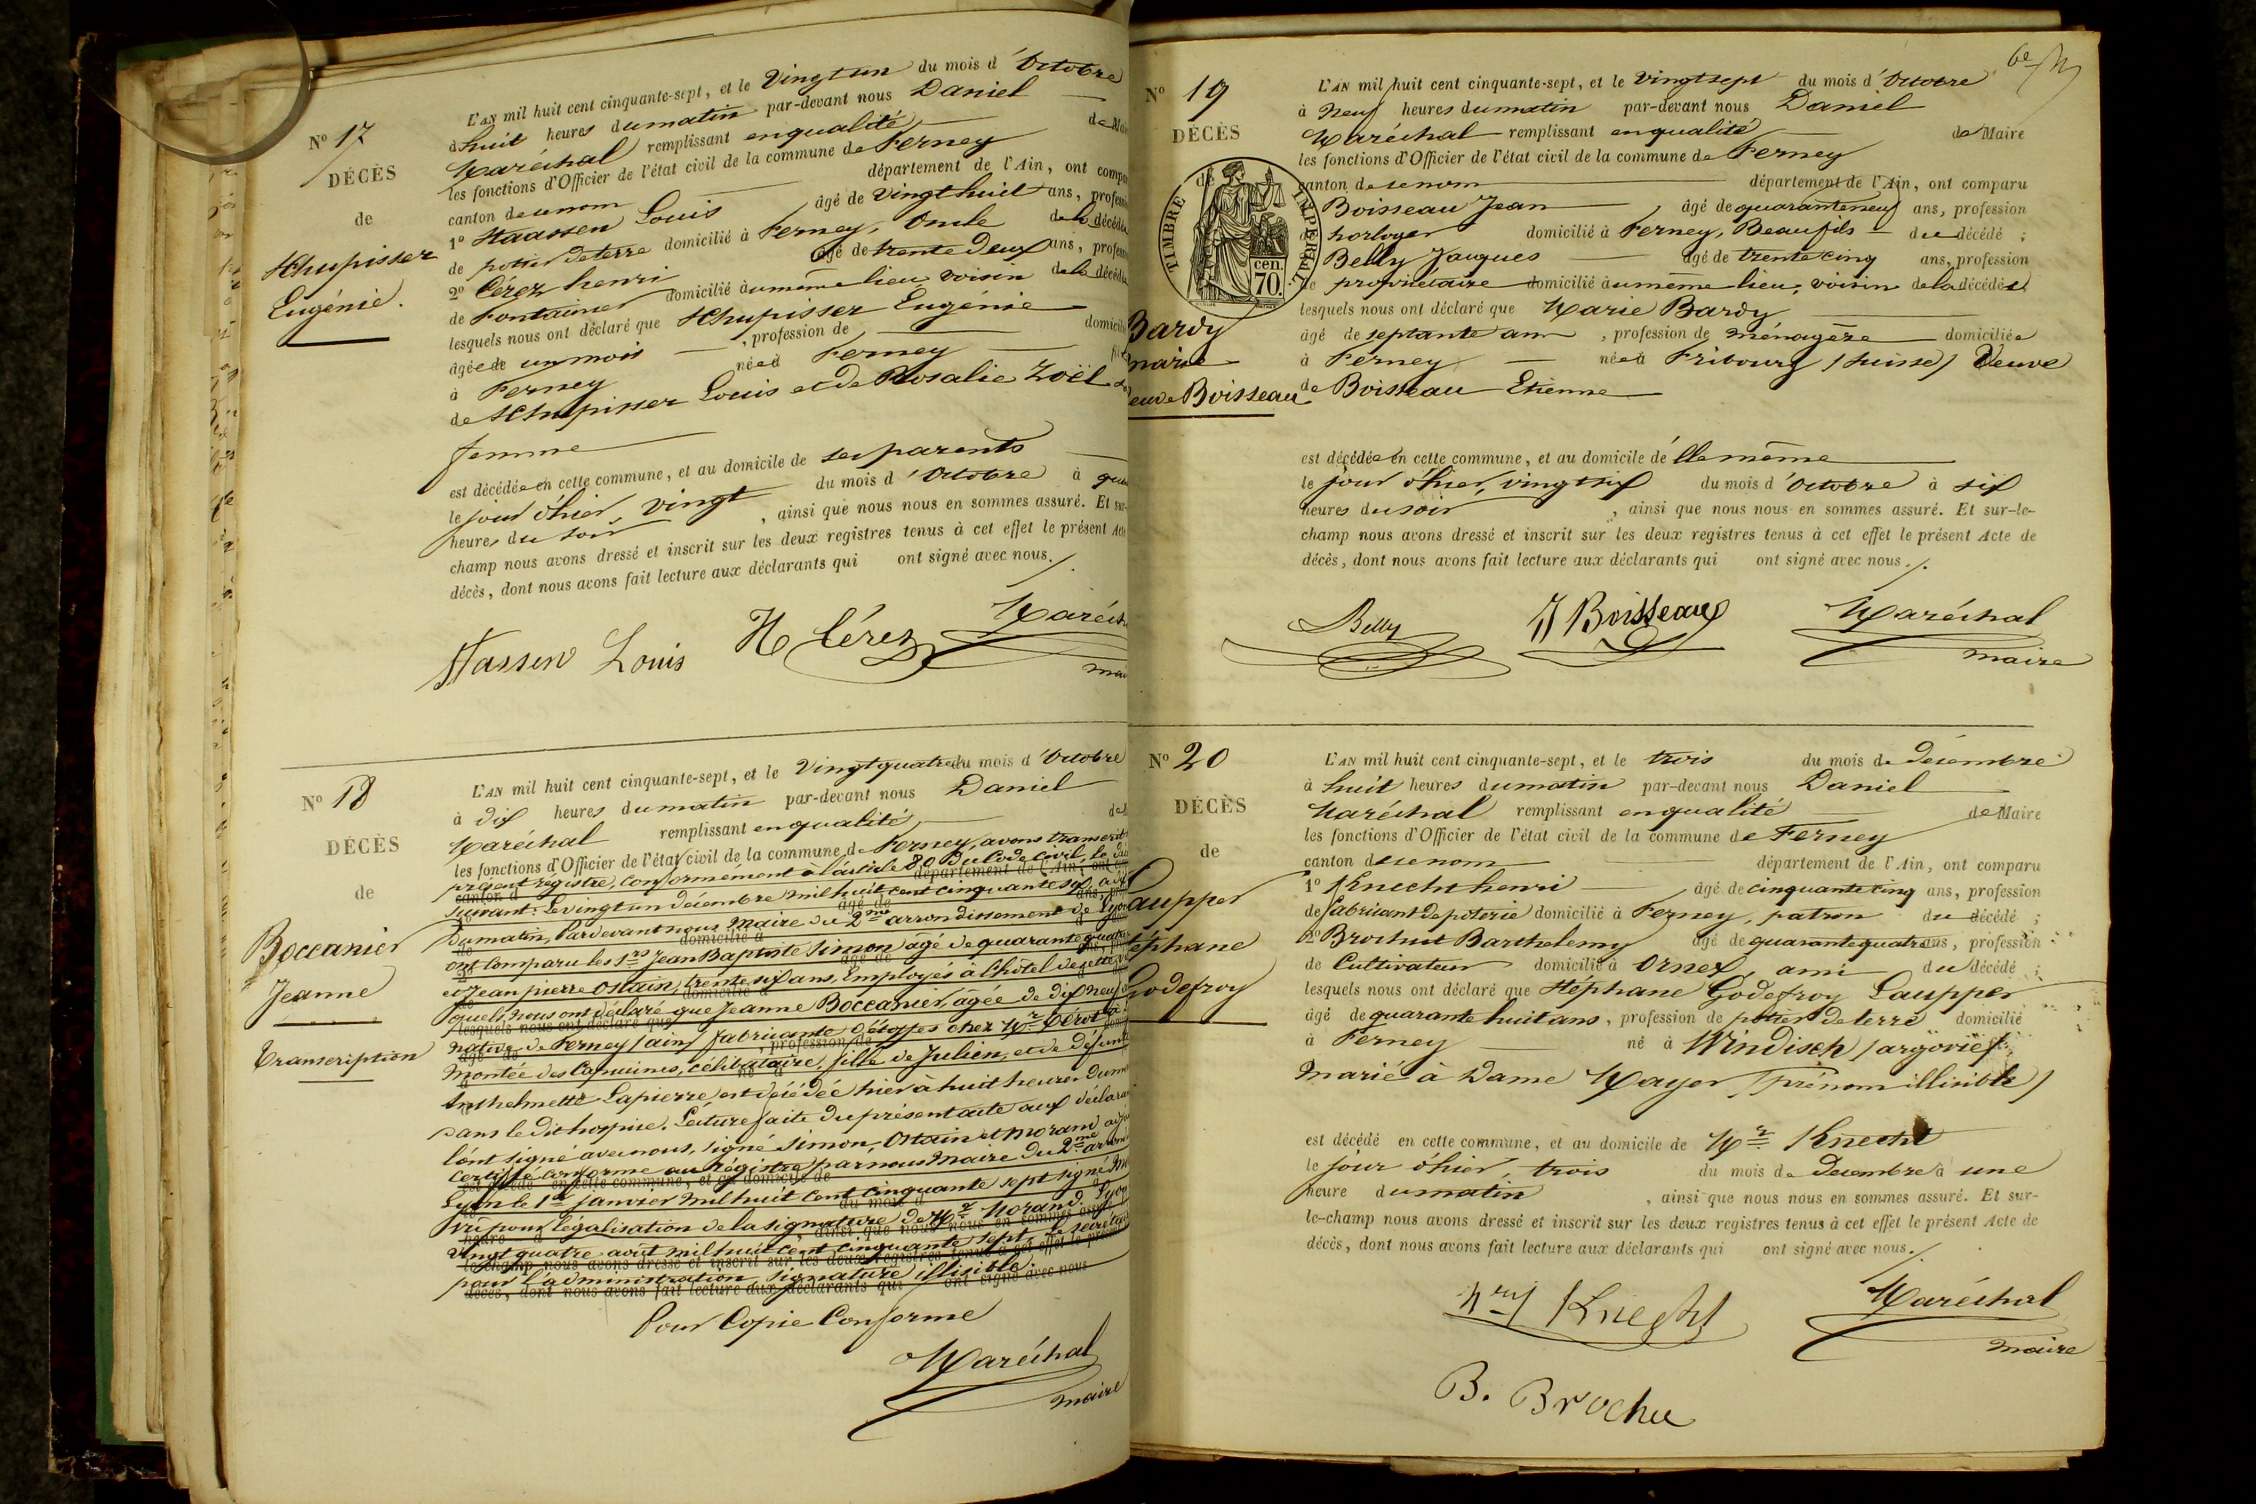 N.º 17
DÉCÈS
de
Schupisser
Eugénie.
L'AN mil huit cent cinquante-sept, et le Vingt un du mois d'Octobre
à huit heures du matin par-devant nous Daniel
Maréchal remplissant en qualité de Mai
les fonctions d'Officier de l'état civil de la commune de Ferney
canton de ce nom département de l'Ain, ont compa
1º Haassen Louis âgé de Vingt huit ans, profess
de potier de terre domicilié à Ferney, Oncle de la décédé
2º Cérez henri âgé de trente deux ans, profess
de Fontainier domicilié au même lieu, voisin de la décédé
lesquels nous ont déclaré que Schupisser Eugénie
âgée de un mois, profession de domicili
à Ferney née à Ferney fil
de Schupisser Louis et de Rosalie Zoël sa
femme
est décédée en cette commune, et au domicile de ses parents
le jour d'hier, vingt du mois d'Octobre à qua
heures du soir, ainsi que nous nous en sommes assuré. Et sur-
champ nous avons dressé et inscrit sur les deux registres tenus à cet effet le présent Acte
décès, dont nous avons fait lecture aux déclarants qui ont signé avec nous./.
Hassen Louis H Cérez Maréch
mai
N.º 18
DÉCÈS
de
Boccanier
Jeanne
Transcription
L'AN mil huit cent cinquante-sept, et le Vingt quatre du mois d'Octobre
à dix heures du matin par-devant nous Daniel
Maréchal remplissant en qualité de
les fonctions d'Officier de l'état civil de la commune de Ferney, avons transcrit
présent régistre, conformement à l'article 80 du Code Civil, le
suivant: Le vingt un décembre mil huit cent cinquante six, à
du matin, Pardevant nous Maire du 2me arrondissement de Lyon
ont comparu les Srs Jean Baptiste Simon âgé de quarante quatre
et Jean pierre Ostain, trente six ans, Employés à l'hôtel de cette
quels nous ont déclaré que Jeanne Boccanier, âgée de dix neuf
native de Ferney /ain/ fabricante d'étoffes chez Mr
montée des Capucines, célibataire, fille de Julien, et de défunte
Anthelmette Lapierre est décédée hier à huit heures du
dans le dit hospice. Lecture faite du présent acte aux déclara
l'ont signé avec nous, signé Simon, Ostain et Morand
Certifié conforme au régistre par nous Maire du 2me
Lyon le 1er janvier mil huit cent cinquante sept signé
Vu pour légalisation de la signature de Mr Morand, Lyon
vingt quatre août mil huit cent cinquante sept, le
pour l'administration, signature illisible.
Pour Copie Conforme
Maréchal
maire
6e
N.º 19
DÉCÈS
de
TIMBRE IMPÉRIAL
70. cen.
Bardy
marie
euve Boisseau
L'AN mil huit cent cinquante-sept, et le Vingt sept du mois d'Octobre
à Neuf heures du matin par-devant nous Daniel
Maréchal remplissant en qualité de Maire
les fonctions d'Officier de l'état civil de la commune de Ferney
canton de ce nom département de l'Ain, ont comparu
Boisseau Jean âgé de quarante neuf ans, profession
horloger domicilié à Ferney, Beaufils du décédé ;
Belly Jacques âgé de trente cinq ans, profession
de propriétaire domicilié au même lieu, voisin de la décédée
lesquels nous ont déclaré que Marie Bardy
âgé de septante ans, profession de ménagère domiciliée
à Ferney née à Fribourg /suisse/ Veuve
de Boisseau Etienne
est décédée en cette commune, et au domicile d'elle même
le jour d'hier, vingt six du mois d'Octobre à six
heures du soir, ainsi que nous nous en sommes assuré. Et sur-le-
champ nous avons dressé et inscrit sur les deux registres tenus à cet effet le présent Acte de
décès, dont nous avons fait lecture aux déclarants qui ont signé avec nous./.
Belly J Boisseau Maréchal
maire
N.º 20
DÉCÈS
de
Laupper
téphane
Godefroy
L'AN mil huit cent cinquante-sept, et le trois du mois de décembre
à huit heures du matin par-devant nous Daniel
Maréchal remplissant en qualité de Maire
les fonctions d'Officier de l'état civil de la commune de Ferney
canton de ce nom département de l'Ain, ont comparu
1º Knecht henri âgé de cinquante cinq ans, profession
de fabricant de poterie domicilié à Ferney, patron du décédé ;
2º Brochut Barthelemy âgé de quarante quatre ans, profession
de Cultivateur domicilié à Ornex, ami du décédé ;
lesquels nous ont déclaré que Stéphane Godefroy Laupper
âgé de quarante huit ans, profession de potier de terre domicilié
à Ferney né à Windisch /argovie/
marié à Dame Mayer /prénom illisible/
est décédé en cette commune, et au domicile de Mr Knecht
le jour d'hier, trois du mois de Décembre à une
heure du matin, ainsi que nous nous en sommes assuré. Et sur-
le-champ nous avons dressé et inscrit sur les deux registres tenus à cet effet le présent Acte de
décès, dont nous avons fait lecture aux déclarants qui ont signé avec nous./.
hry Knecht Maréchal
maire
B. Brochu